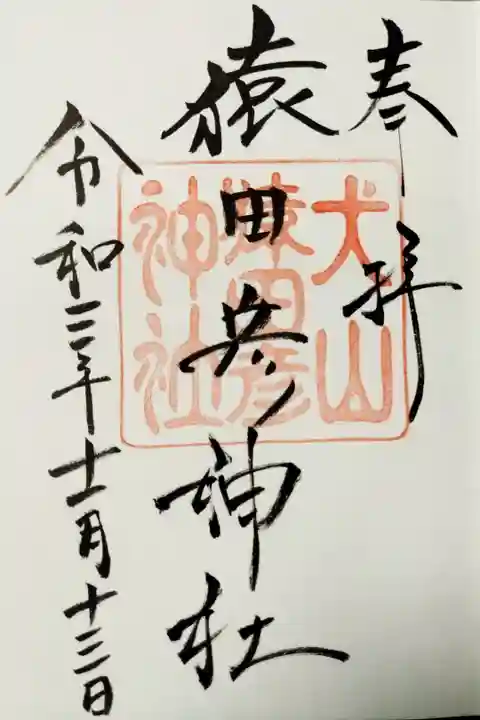 奉拝
猿田彦神社
令和三年十一月十三日
犬山
猿田彦
神社